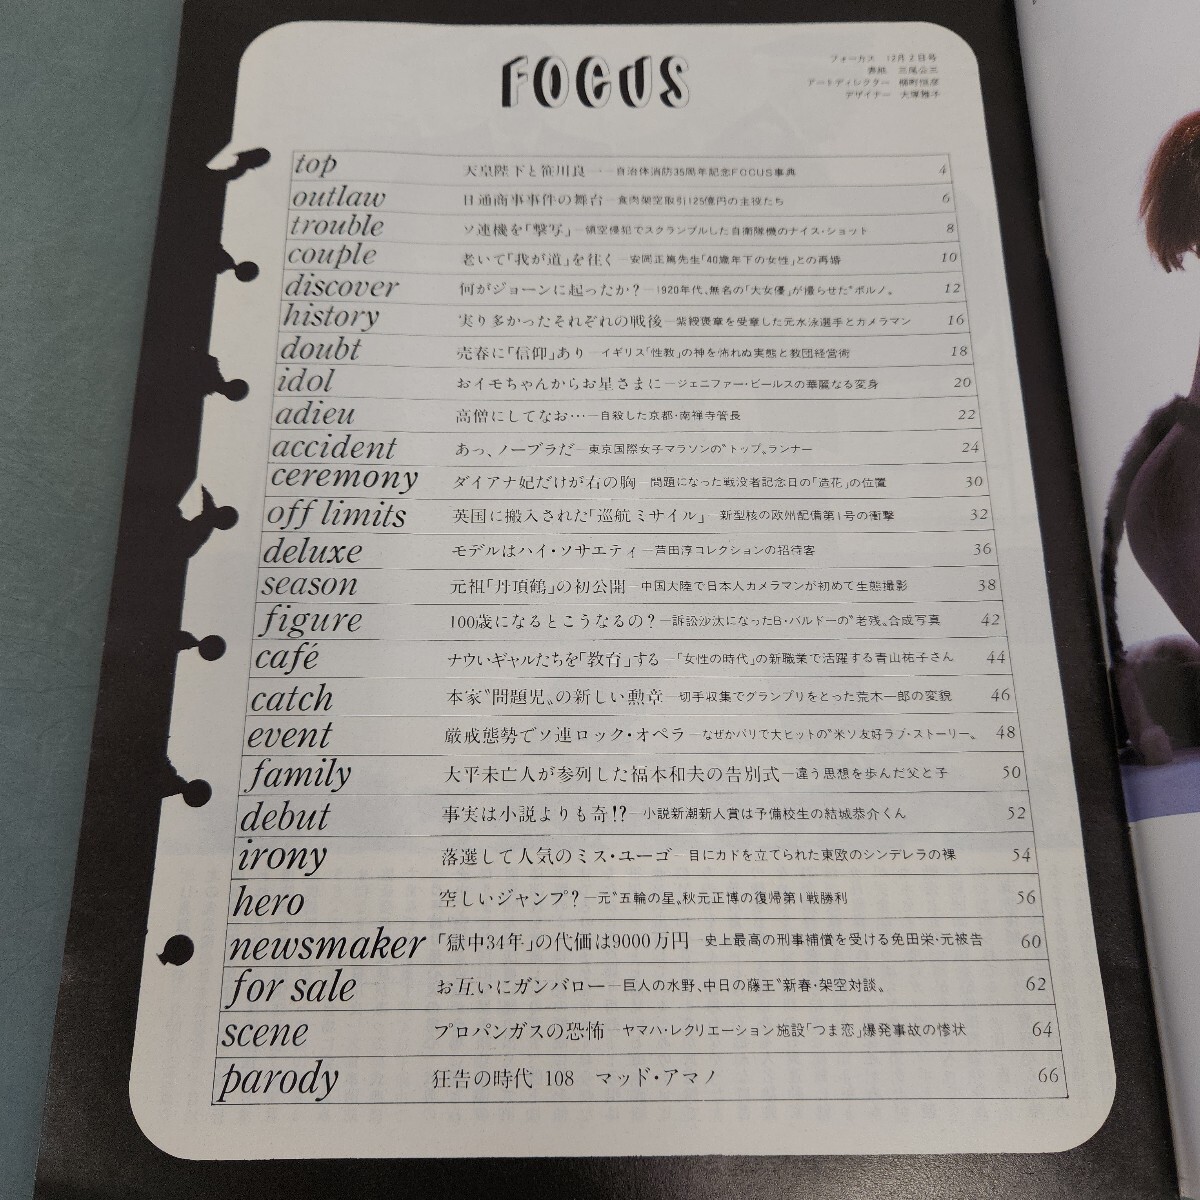 FOCUS
フォーカス 12月2日号
表紙 三尾公三
アートディレクター
デザイナー
top 天皇陛下と笹川良一—自治体消防35周年記念FOCUS事典 4
outlaw 日通商事事件の舞台—食肉架空取引125億円の主役たち 6
trouble ソ連機を「撃写」—領空侵犯でスクランブルした自衛隊機のナイス・ショット 8
couple 老いて「我が道」を往く—安岡正篤先生「40歳年下の女性」との再婚 10
discover 何がジョーンに起ったか?—1920年代、無名の「大女優」が撮らせた〝ポルノ〟 12
history 実り多かったそれぞれの戦後—紫綬褒章を受章した元水泳選手とカメラマン 16
doubt 売春に「信仰」あり—イギリス「性教」の神を怖れぬ実態と教団経営術 18
idol おイモちゃんからお星さまに—ジェニファー・ビールスの華麗なる変身 20
adieu 高僧にしてなお…—自殺した京都・南禅寺管長 22
accident あっ、ノーブラだ—東京国際女子マラソンの〝トップ〟ランナー 24
ceremony ダイアナ妃だけが右の胸—問題になった戦没者記念日の「造花」の位置 30
off limits 英国に搬入された「巡航ミサイル」—新型核の欧州配備第1号の衝撃 32
deluxe モデルはハイ・ソサエティ—芦田淳コレクションの招待客 36
season 元祖「丹頂鶴」の初公開—中国大陸で日本人カメラマンが初めて生態撮影 38
figure 100歳になるとこうなるの?—訴訟沙汰になったB・バルドーの〝老残〟合成写真 42
café ナウいギャルたちを「教育」する—「女性の時代」の新職業で活躍する青山祐子さん 44
catch 本家〝問題児〟の新しい勲章—切手収集でグランプリをとった荒木一郎の変貌 46
event 厳戒態勢でソ連ロック・オペラ—なぜかパリで大ヒットの〝米ソ友好ラブ・ストーリー〟 48
family 大平未亡人が参列した福本和夫の告別式—違う思想を歩んだ父と子 50
debut 事実は小説よりも奇!?—小説新潮新人賞は予備校生の結城恭介くん 52
irony 落選して人気のミス・ユーゴ—目にカドを立てられた東欧のシンデレラの裸 54
hero 空しいジャンプ?—元〝五輪の星〟秋元正博の復帰第1戦勝利 56
newsmaker 「獄中34年」の代価は9000万円—史上最高の刑事補償を受ける免田栄・元被告 60
for sale お互いにガンバロー—巨人の水野、中日の藤王〝新春・架空対談〟 62
scene プロパンガスの恐怖—ヤマハ・レクリエーション施設「つま恋」爆発事故の惨状 64
parody 狂告の時代 108 マッド・アマノ 66